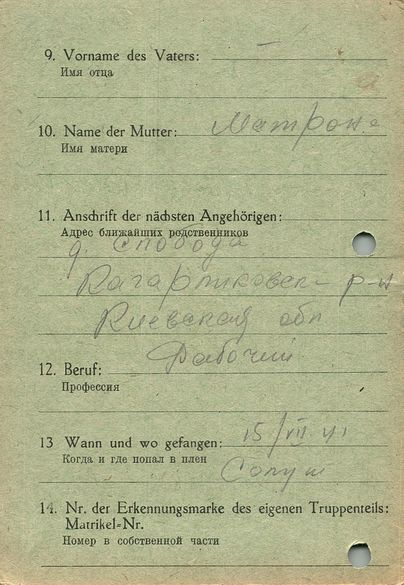 9. Vorname des Vaters: —
Имя отца
10. Name der Mutter: Матрона
Имя матери
11. Anschrift der nächsten Angehörigen:
Адрес ближайших родственников
д. Слобода
Кагарликовск– р–н
Киевская обл
Рабочий
12. Beruf:
Профессия
13 Wann und wo gefangen: 15/VII.41
Когда и где попал в плен
14. Nr. der Erkennungsmarke des eigenen Truppenteils:
Matrikel=Nr.
Номер в собственной части